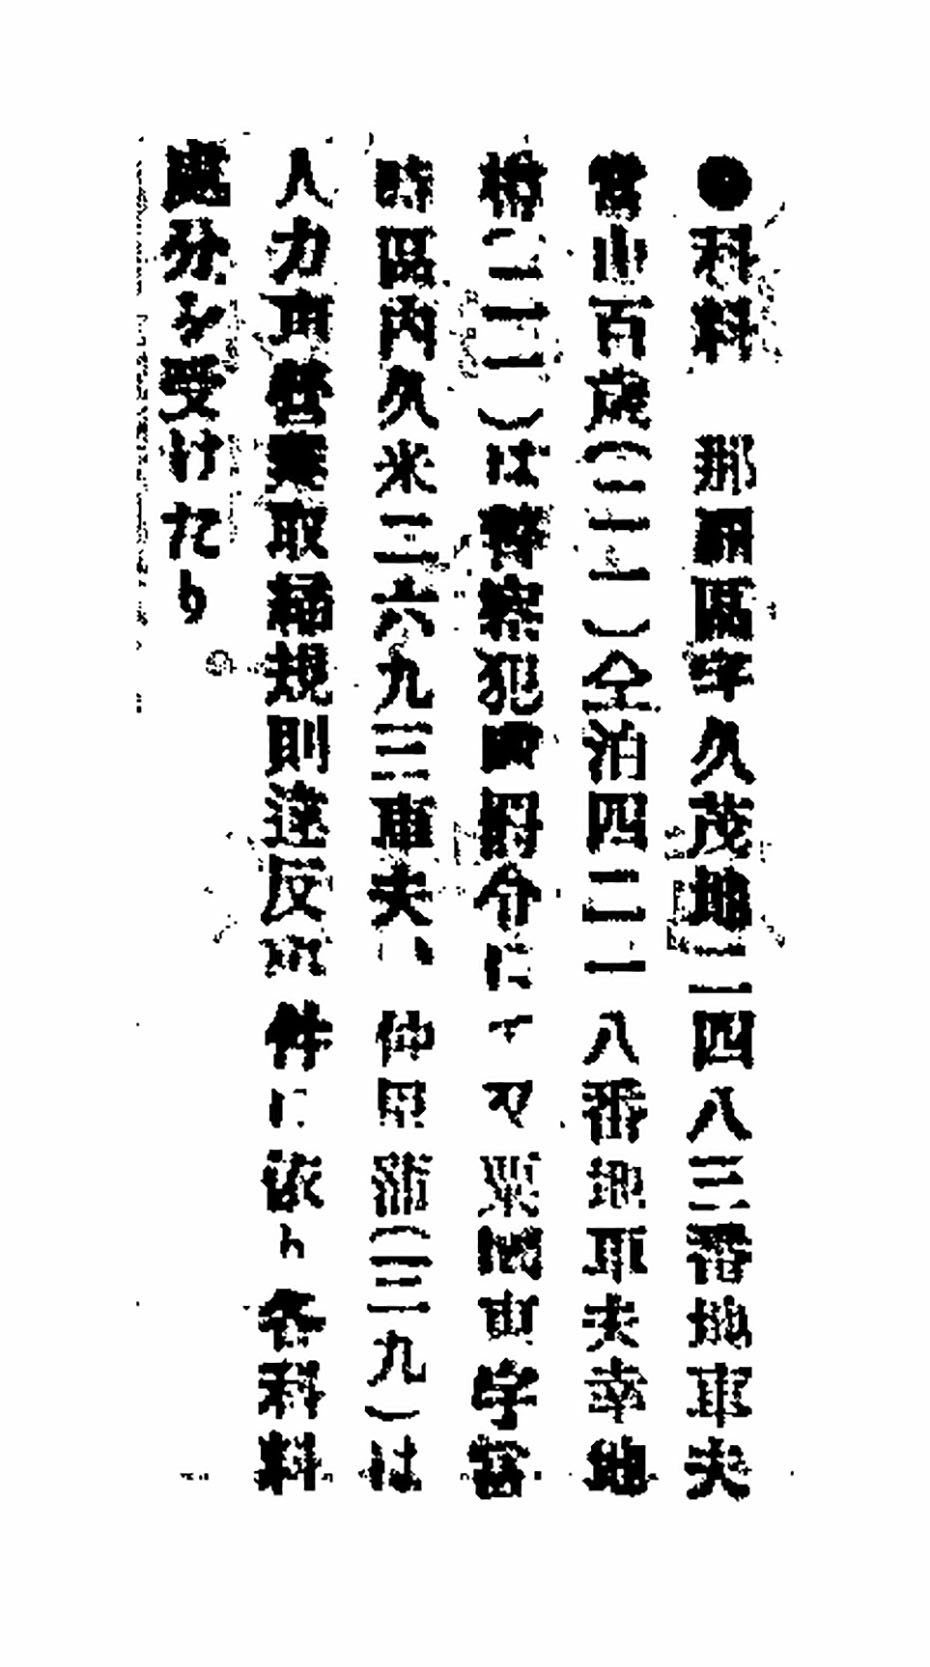 ●科料　那覇區字久茂地二四八三番地車夫
當山百歳(二二)仝泊四二一八番地車夫幸地
(二二)は警察犯處罰令に
時區内久米二六九三車夫 仲里蒲(三九)は
人力車營業取締規則違反事件に依り各科料
處分を受けたり